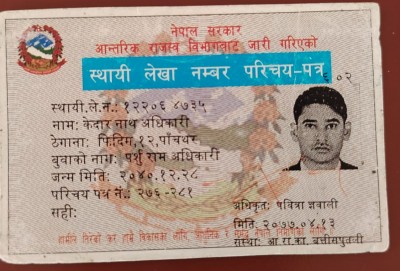 नेपाल सरकार
आन्तरिक राजस्व विभागबाट जारी गरिएको
स्थायी लेखा नम्बर परिचय-पत्र
६०२
स्थायी.ले.न.: १२२०६ ४७३५
नाम: केदार नाथ अधिकारी
ठेगाना: फिदिम,१२,पाँचथर
बुवाको नाम: पर्शु राम अधिकारी
जन्म मिति: २०४०.१२.२८
परिचय पत्र नं.: २७६-२८१
सही:
अधिकृत: पवित्रा ज्ञवाली
मिति: २०७७.०४.१३
संस्था: आ.रा.का. बत्तीसपुतली